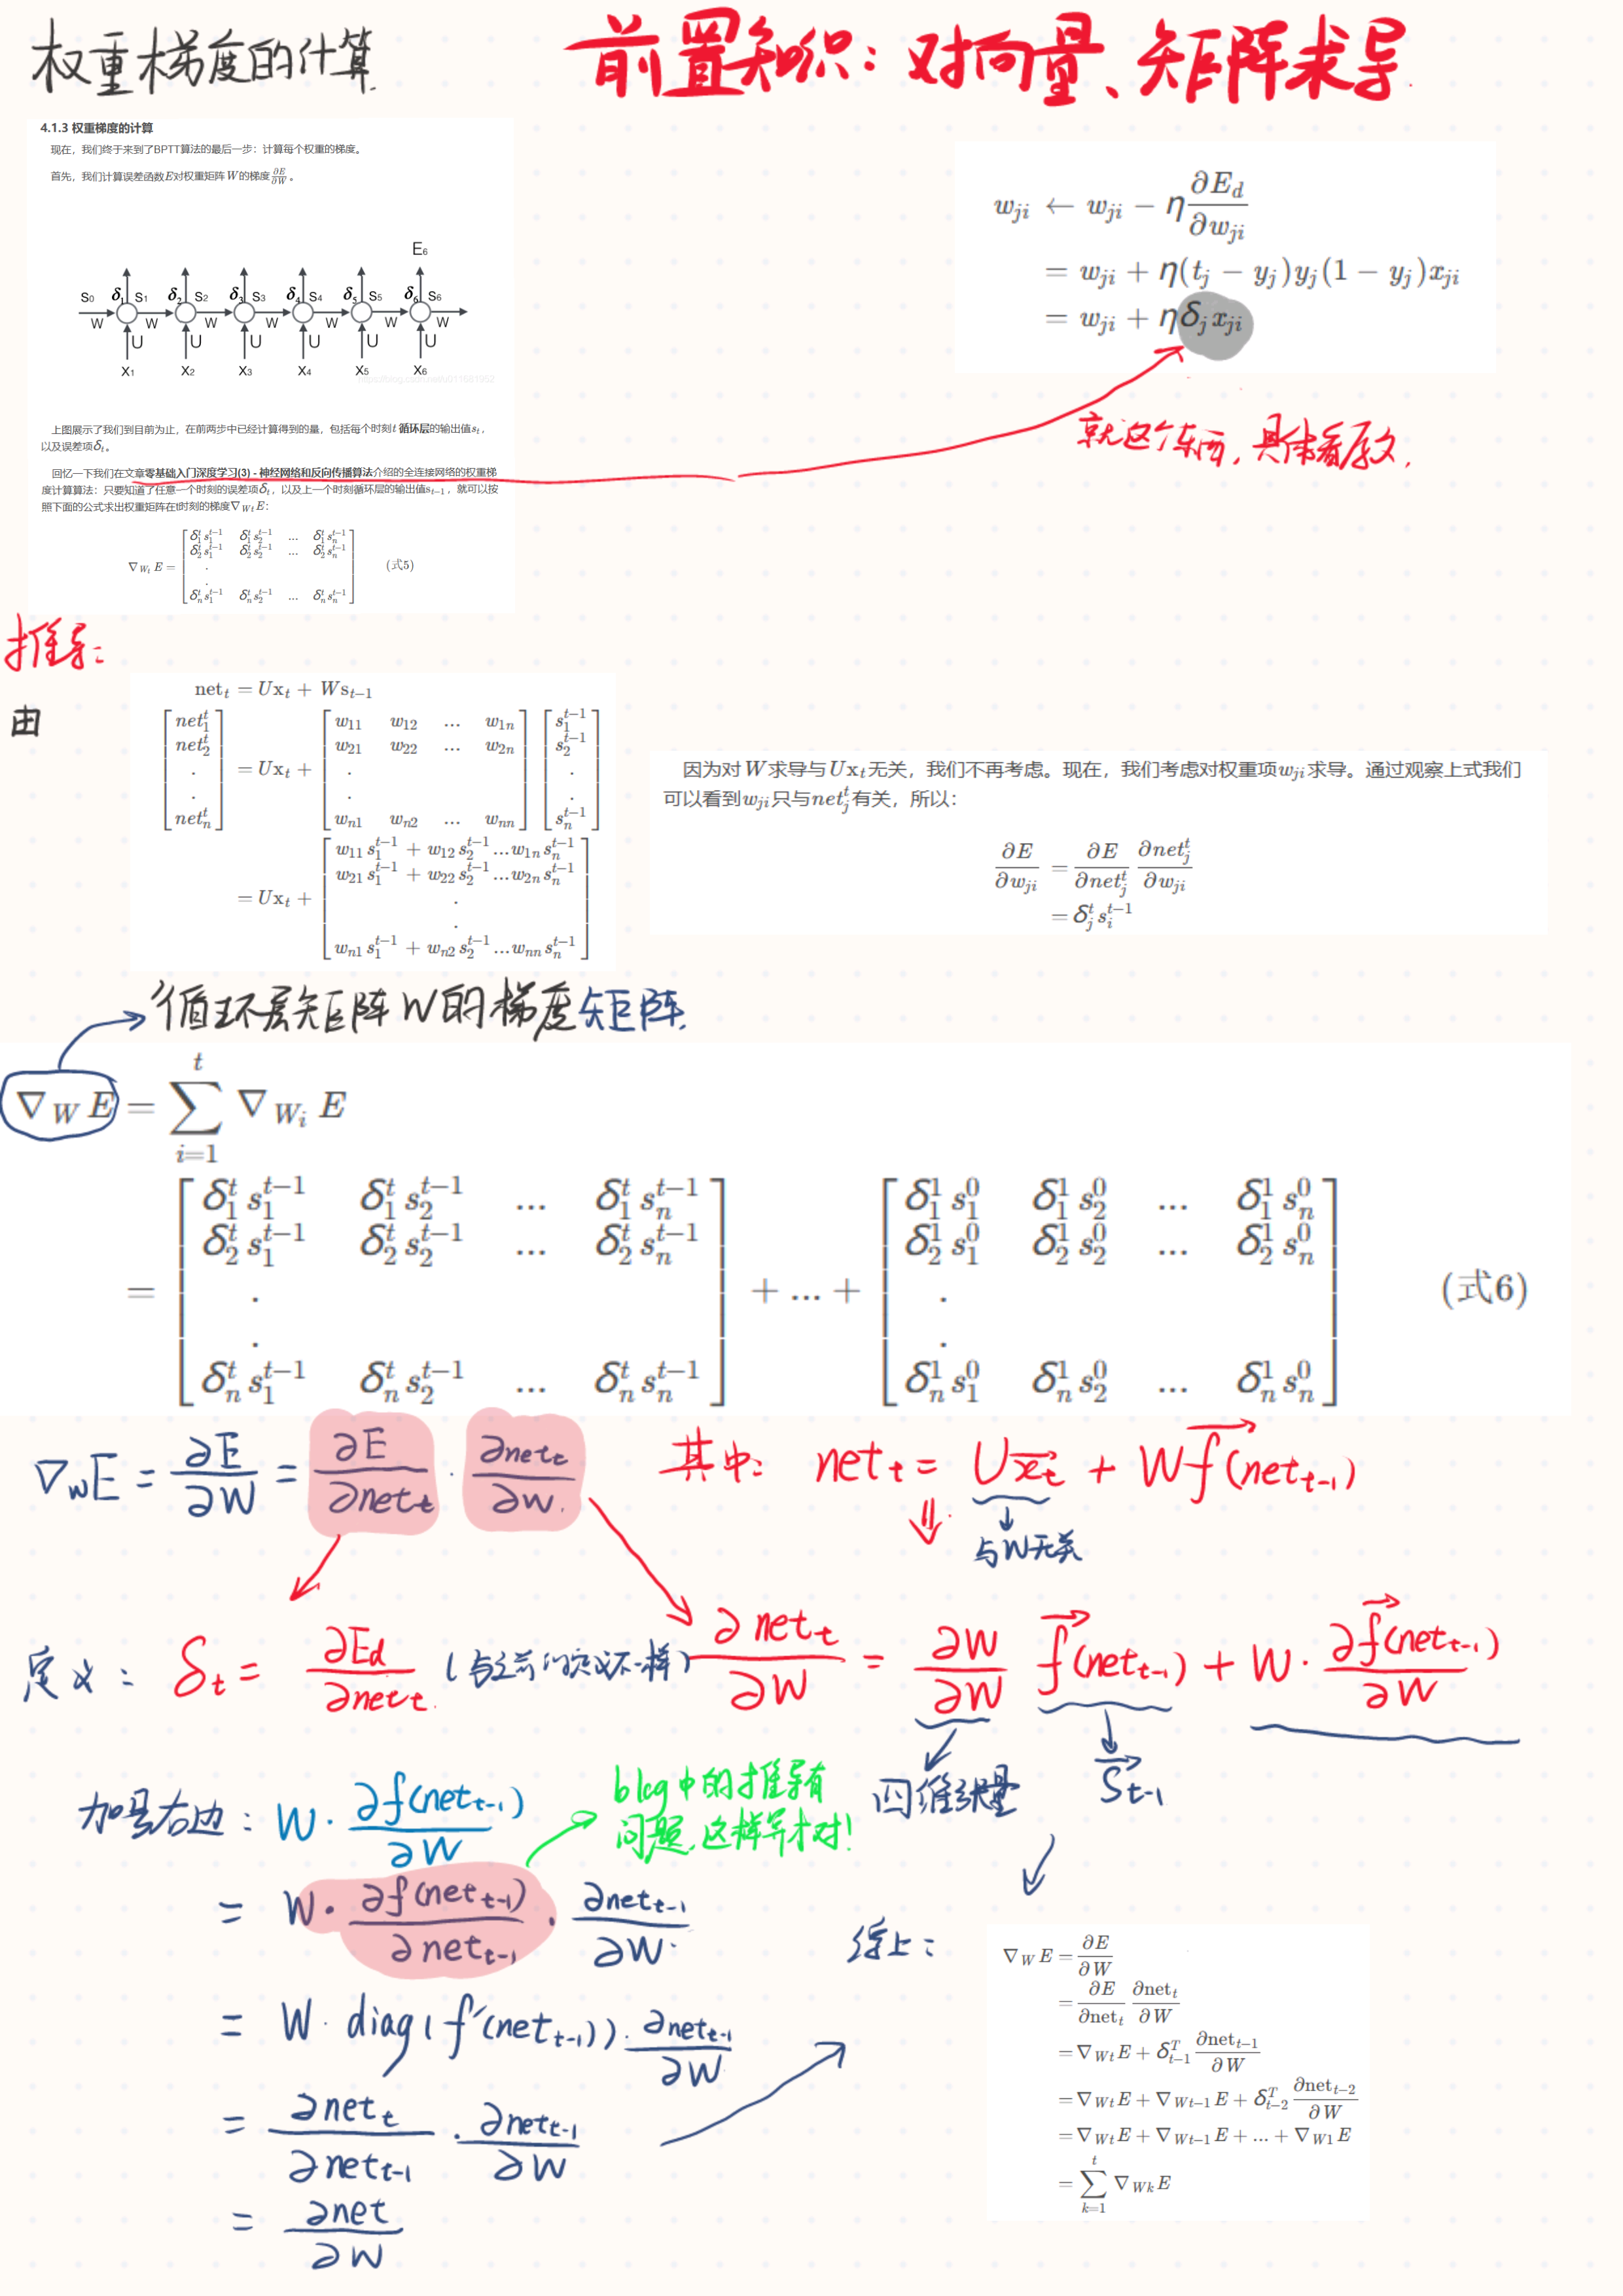 权重梯度的计算.
前置知识：对向量、矩阵求导.
4.1.3 权重梯度的计算
现在，我们终于来到了BPTT算法的最后一步：计算每个权重的梯度。
首先，我们计算误差函数E对权重矩阵 W的梯度∂E/∂W。
E₆
S₀ δ₁ S₁ δ₂ S₂ δ₃ S₃ δ₄ S₄ δ₅ S₅ δ₆ S₆
W W W W W W W
U U U U U U
X₁ X₂ X₃ X₄ X₅ X₆
上图展示了我们到目前为止，在前两步中已经计算得到的量，包括每个时刻t 循环层的输出值sₜ，
以及误差项δₜ。
回忆一下我们在文章零基础入门深度学习(3) - 神经网络和反向传播算法介绍的全连接网络的权重梯
度计算算法：只要知道了任意一个时刻的误差项δₜ，以及上一个时刻循环层的输出值sₜ₋₁，就可以按
照下面的公式求出权重矩阵在t时刻的梯度∇_{Wt}E：
∇_{Wₜ} E = [ δ₁ᵗs₁ᵗ⁻¹ δ₁ᵗs₂ᵗ⁻¹ ... δ₁ᵗsₙᵗ⁻¹
δ₂ᵗs₁ᵗ⁻¹ δ₂ᵗs₂ᵗ⁻¹ ... δ₂ᵗsₙᵗ⁻¹
.
.
δₙᵗs₁ᵗ⁻¹ δₙᵗs₂ᵗ⁻¹ ... δₙᵗsₙᵗ⁻¹ ] (式5)
w_{ji} ← w_{ji} − η ∂E_d/∂w_{ji}
= w_{ji} + η(t_j − y_j)y_j(1 − y_j)x_{ji}
= w_{ji} + ηδ_j x_{ji}
就这个东西，具体看原文.
推导：
由
netₜ = Uxₜ + Wsₜ₋₁
[ net₁ᵗ net₂ᵗ . . netₙᵗ ] = Uxₜ + [ w₁₁ w₁₂ ... w₁ₙ
w₂₁ w₂₂ ... w₂ₙ
.
.
wₙ₁ wₙ₂ ... wₙₙ ] [ s₁ᵗ⁻¹ s₂ᵗ⁻¹ . . sₙᵗ⁻¹ ]
= Uxₜ + [ w₁₁s₁ᵗ⁻¹ + w₁₂s₂ᵗ⁻¹...w₁ₙsₙᵗ⁻¹
w₂₁s₁ᵗ⁻¹ + w₂₂s₂ᵗ⁻¹...w₂ₙsₙᵗ⁻¹
.
.
wₙ₁s₁ᵗ⁻¹ + wₙ₂s₂ᵗ⁻¹...wₙₙsₙᵗ⁻¹ ]
因为对W求导与Uxₜ无关，我们不再考虑。现在，我们考虑对权重项w_{ji}求导。通过观察上式我们
可以看到w_{ji}只与net_jᵗ有关，所以：
∂E/∂w_{ji} = ∂E/∂net_jᵗ ∂net_jᵗ/∂w_{ji}
= δ_jᵗ s_iᵗ⁻¹
循环层矩阵W的梯度矩阵.
∇_W E = ∑_{i=1}^{t} ∇_{W_i} E
= [ δ₁ᵗs₁ᵗ⁻¹ δ₁ᵗs₂ᵗ⁻¹ ... δ₁ᵗsₙᵗ⁻¹
δ₂ᵗs₁ᵗ⁻¹ δ₂ᵗs₂ᵗ⁻¹ ... δ₂ᵗsₙᵗ⁻¹
.
.
δₙᵗs₁ᵗ⁻¹ δₙᵗs₂ᵗ⁻¹ ... δₙᵗsₙᵗ⁻¹ ] + ... + [ δ₁¹s₁⁰ δ₁¹s₂⁰ ... δ₁¹sₙ⁰
δ₂¹s₁⁰ δ₂¹s₂⁰ ... δ₂¹sₙ⁰
.
.
δₙ¹s₁⁰ δₙ¹s₂⁰ ... δₙ¹sₙ⁰ ] (式6)
∇_W E = ∂E/∂W = ∂E/∂netₜ · ∂netₜ/∂W.
其中： netₜ = Ux⃗ₜ + Wf⃗(netₜ₋₁)
⇓ 与W无关
定义： δₜ = ∂E_d/∂netₜ. (与之前的定义不一样)
∂netₜ/∂W = ∂W/∂W f⃗(netₜ₋₁) + W · ∂f⃗(netₜ₋₁)/∂W
四维张量 S⃗ₜ₋₁
加号右边： W · ∂f(netₜ₋₁)/∂W
blog中的推导有
问题，这样导才对！
= W · ∂f(netₜ₋₁)/∂netₜ₋₁ · ∂netₜ₋₁/∂W.
= W · diag(f′(netₜ₋₁)) · ∂netₜ₋₁/∂W
= ∂netₜ/∂netₜ₋₁ · ∂netₜ₋₁/∂W
= ∂net/∂W
综上：
∇_W E = ∂E/∂W
= ∂E/∂netₜ ∂netₜ/∂W
= ∇_{Wt}E + δᵀₜ₋₁ ∂netₜ₋₁/∂W
= ∇_{Wt}E + ∇_{Wt−1}E + δᵀₜ₋₂ ∂netₜ₋₂/∂W
= ∇_{Wt}E + ∇_{Wt−1}E + ... + ∇_{W1}E
= ∑_{k=1}^{t} ∇_{Wk}E